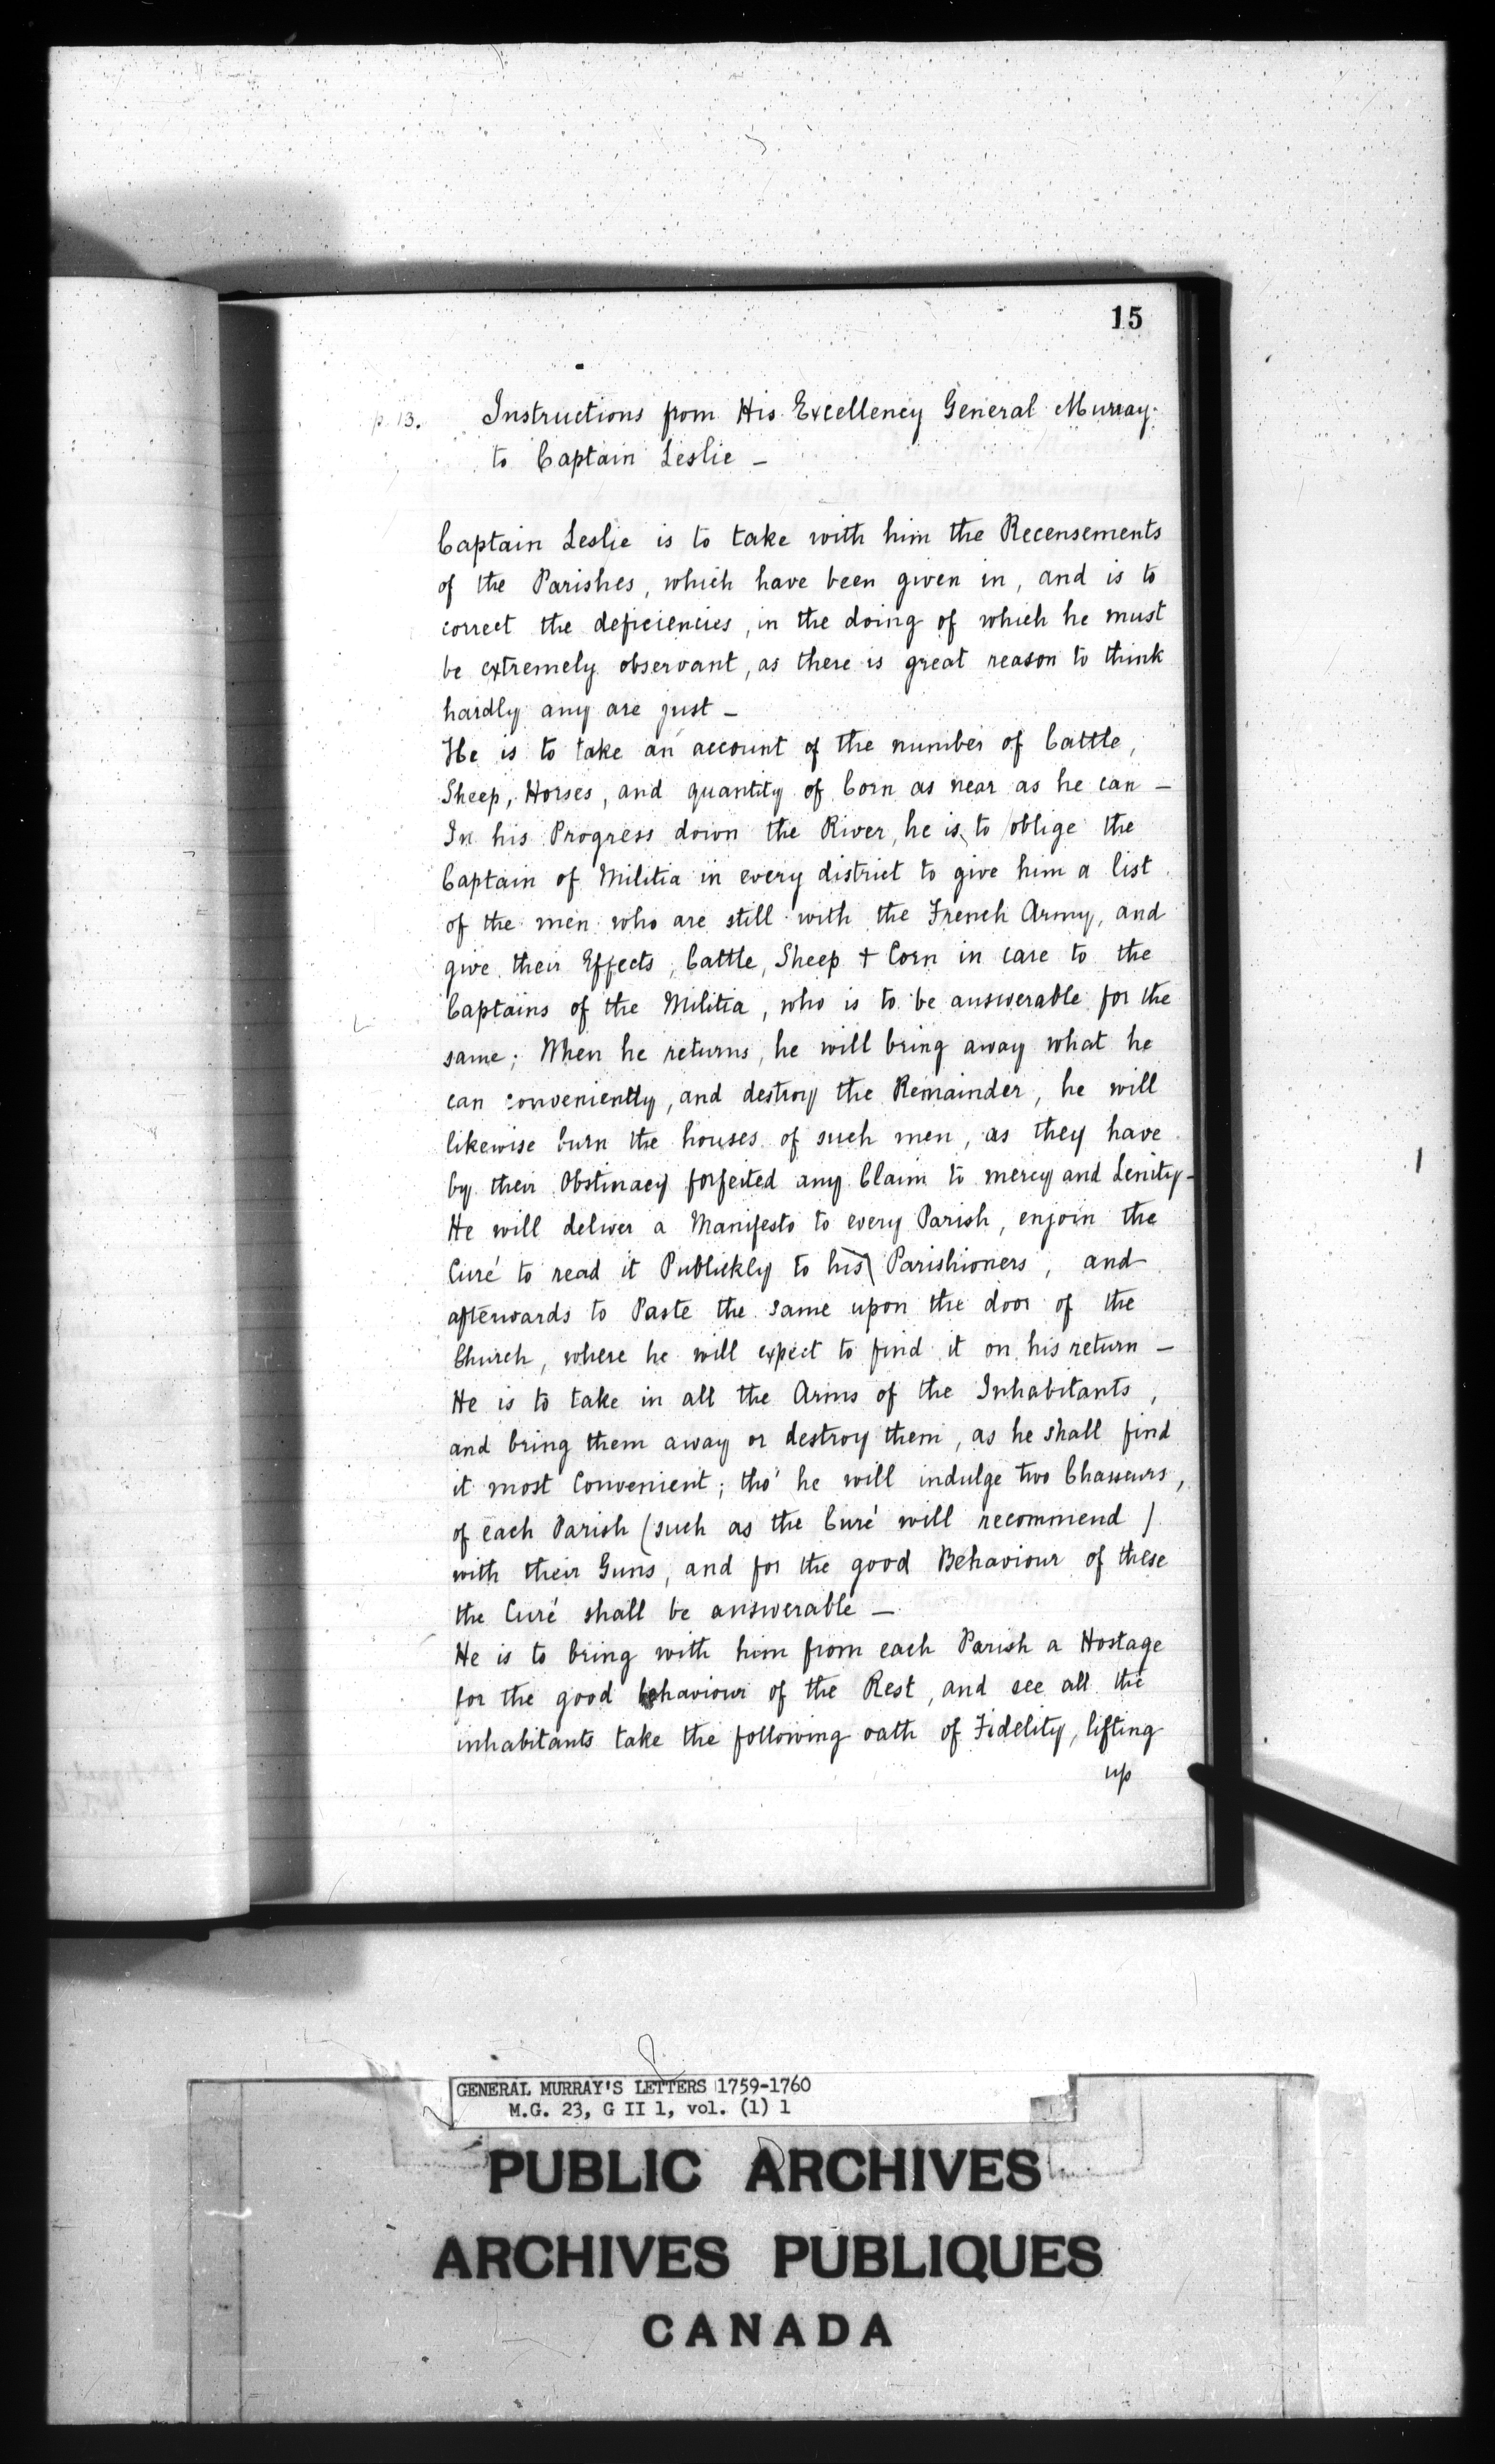 15
p. 13.
Instructions from His Excellency General Murray
to Captain Leslie —
Captain Leslie is to take with him the Recensements
of the Parishes, which have been given in, and is to
correct the deficiencies, in the doing of which he must
be extremely observant, as there is great reason to think
hardly any are just —
He is to take an account of the number of Cattle,
Sheep, Horses, and quantity of Corn as near as he can —
In his Progress down the River, he is to oblige the
Captain of Militia in every district to give him a list
of the men who are still with the French Army, and
give their Effects, Cattle, Sheep + Corn in care to the
Captains of the Militia, who is to be answerable for the
same; When he returns, he will bring away what he
can conveniently, and destroy the Remainder, he will
likewise burn the houses of such men, as they have
by their Obstinacy forfeited any Claim to mercy and Lenity —
He will deliver a Manifesto to every Parish, enjoin the
Curé to read it Publickly to his Parishioners, and
afterwards to Paste the same upon the door of the
Church, where he will expect to find it on his return —
He is to take in all the Arms of the Inhabitants,
and bring them away or destroy them, as he shall find
it most Convenient; tho' he will indulge two Chasseurs,
of each Parish (such as the Curé will recommend)
with their Guns, and for the good Behaviour of these
the Curé shall be answerable —
He is to bring with him from each Parish a Hostage
for the good behaviour of the Rest, and see all the
inhabitants take the following oath of Fidelity, lifting
up
GENERAL MURRAY'S LETTERS 1759-1760
M.G. 23, G II 1, vol. (1) 1
PUBLIC ARCHIVES
ARCHIVES PUBLIQUES
CANADA